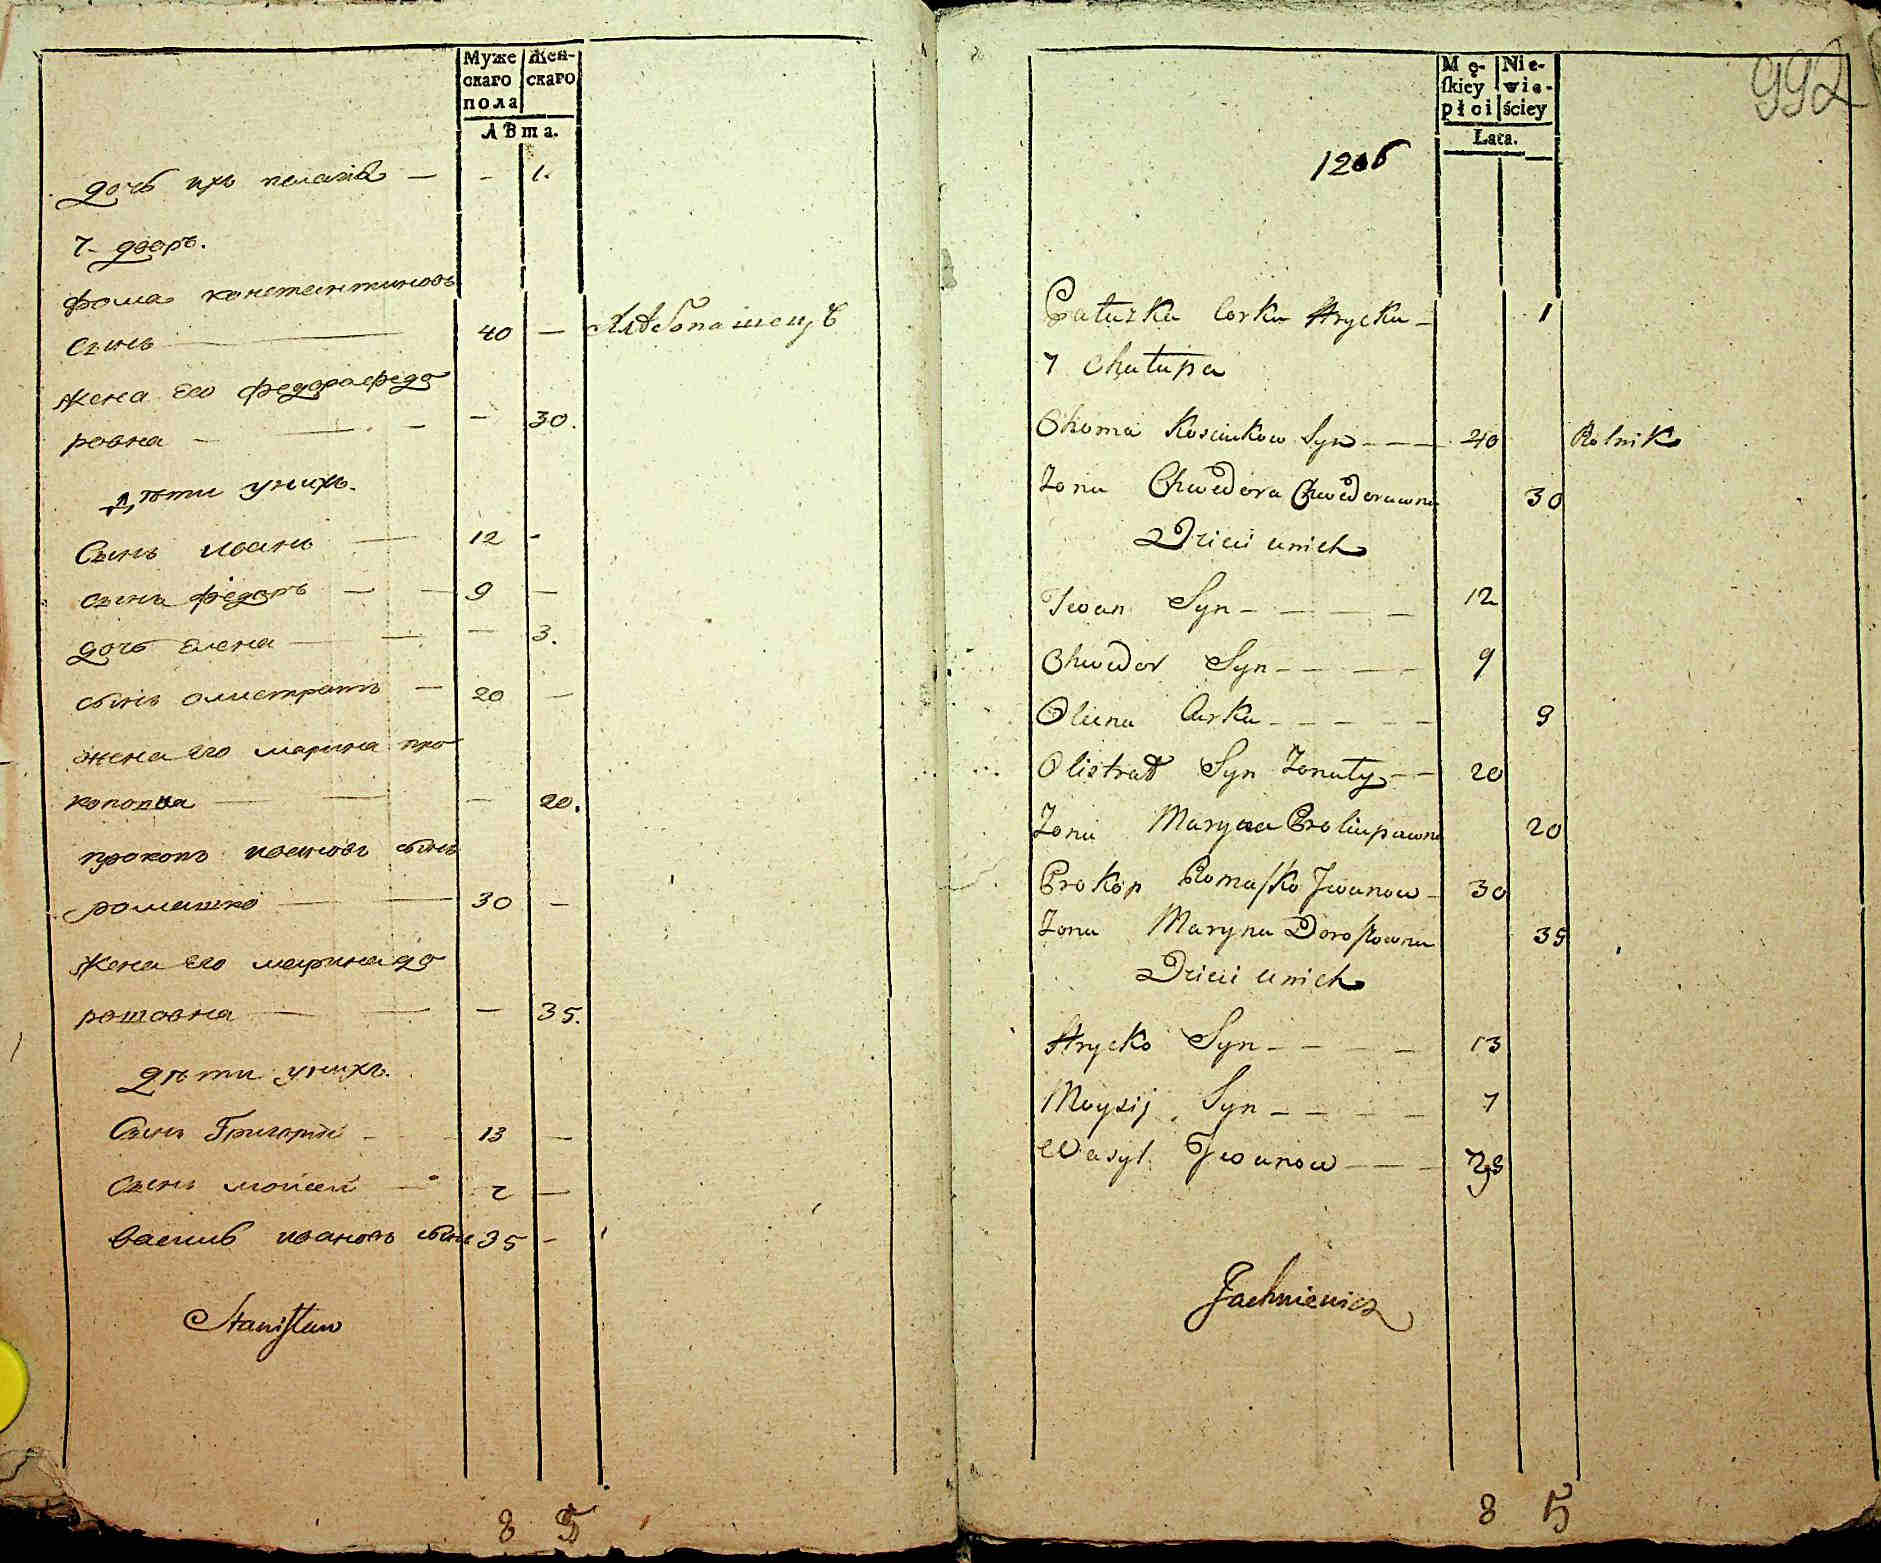 Муже Жен-
скаго скаго
пола
лѣта.
дочь ихъ пелагѣя — - 1.
7. дворъ.
фома константиновъ
сынъ — 40 — Хлѣбопашецъ
жена его федора федо
ровна — - 30.
дѣти унихъ.
Сынъ иванъ — 12 -
сынъ федоръ — — 9 —
дочь елена — — - 3.
сынъ олистратъ — 20 —
жена его марина про
копопна — — - 20.
прокопъ ивановъ сынъ
ромашко — — 30 —
жена его марина до
рошовна — — - 35.
дѣти унихъ.
Сынъ Григорій - 13 —
Сынъ мойсей — 7 —
василь ивановъ сынъ 35 -
Stanisław
8 5
992
Mę- Nie-
skiey wie-
płci ściey
Lata.
1206
Pałazka Corka Hrycka - 1
7 Chałupa
Choma Kosciukow Syn - - - 40 Rolnik
Zona Chwedora Chwedorawna 30
Dzieci unich
Iwan Syn - - - - 12
Chwedor Syn - - - - 9
Oliena Curka - - - - - 9
Olistrat Syn Zonaty - - 20
Zona Maryna Prokupawna 20
Prokop Romaszko Iwanow - 30
Zona Maryna Doroszowna 35
Dzieci unich
Hrycko Syn - - - - 13
Moysij Syn - - - - 7
Wasyl Iwanow - - - 35
Jachniewicz
8 5